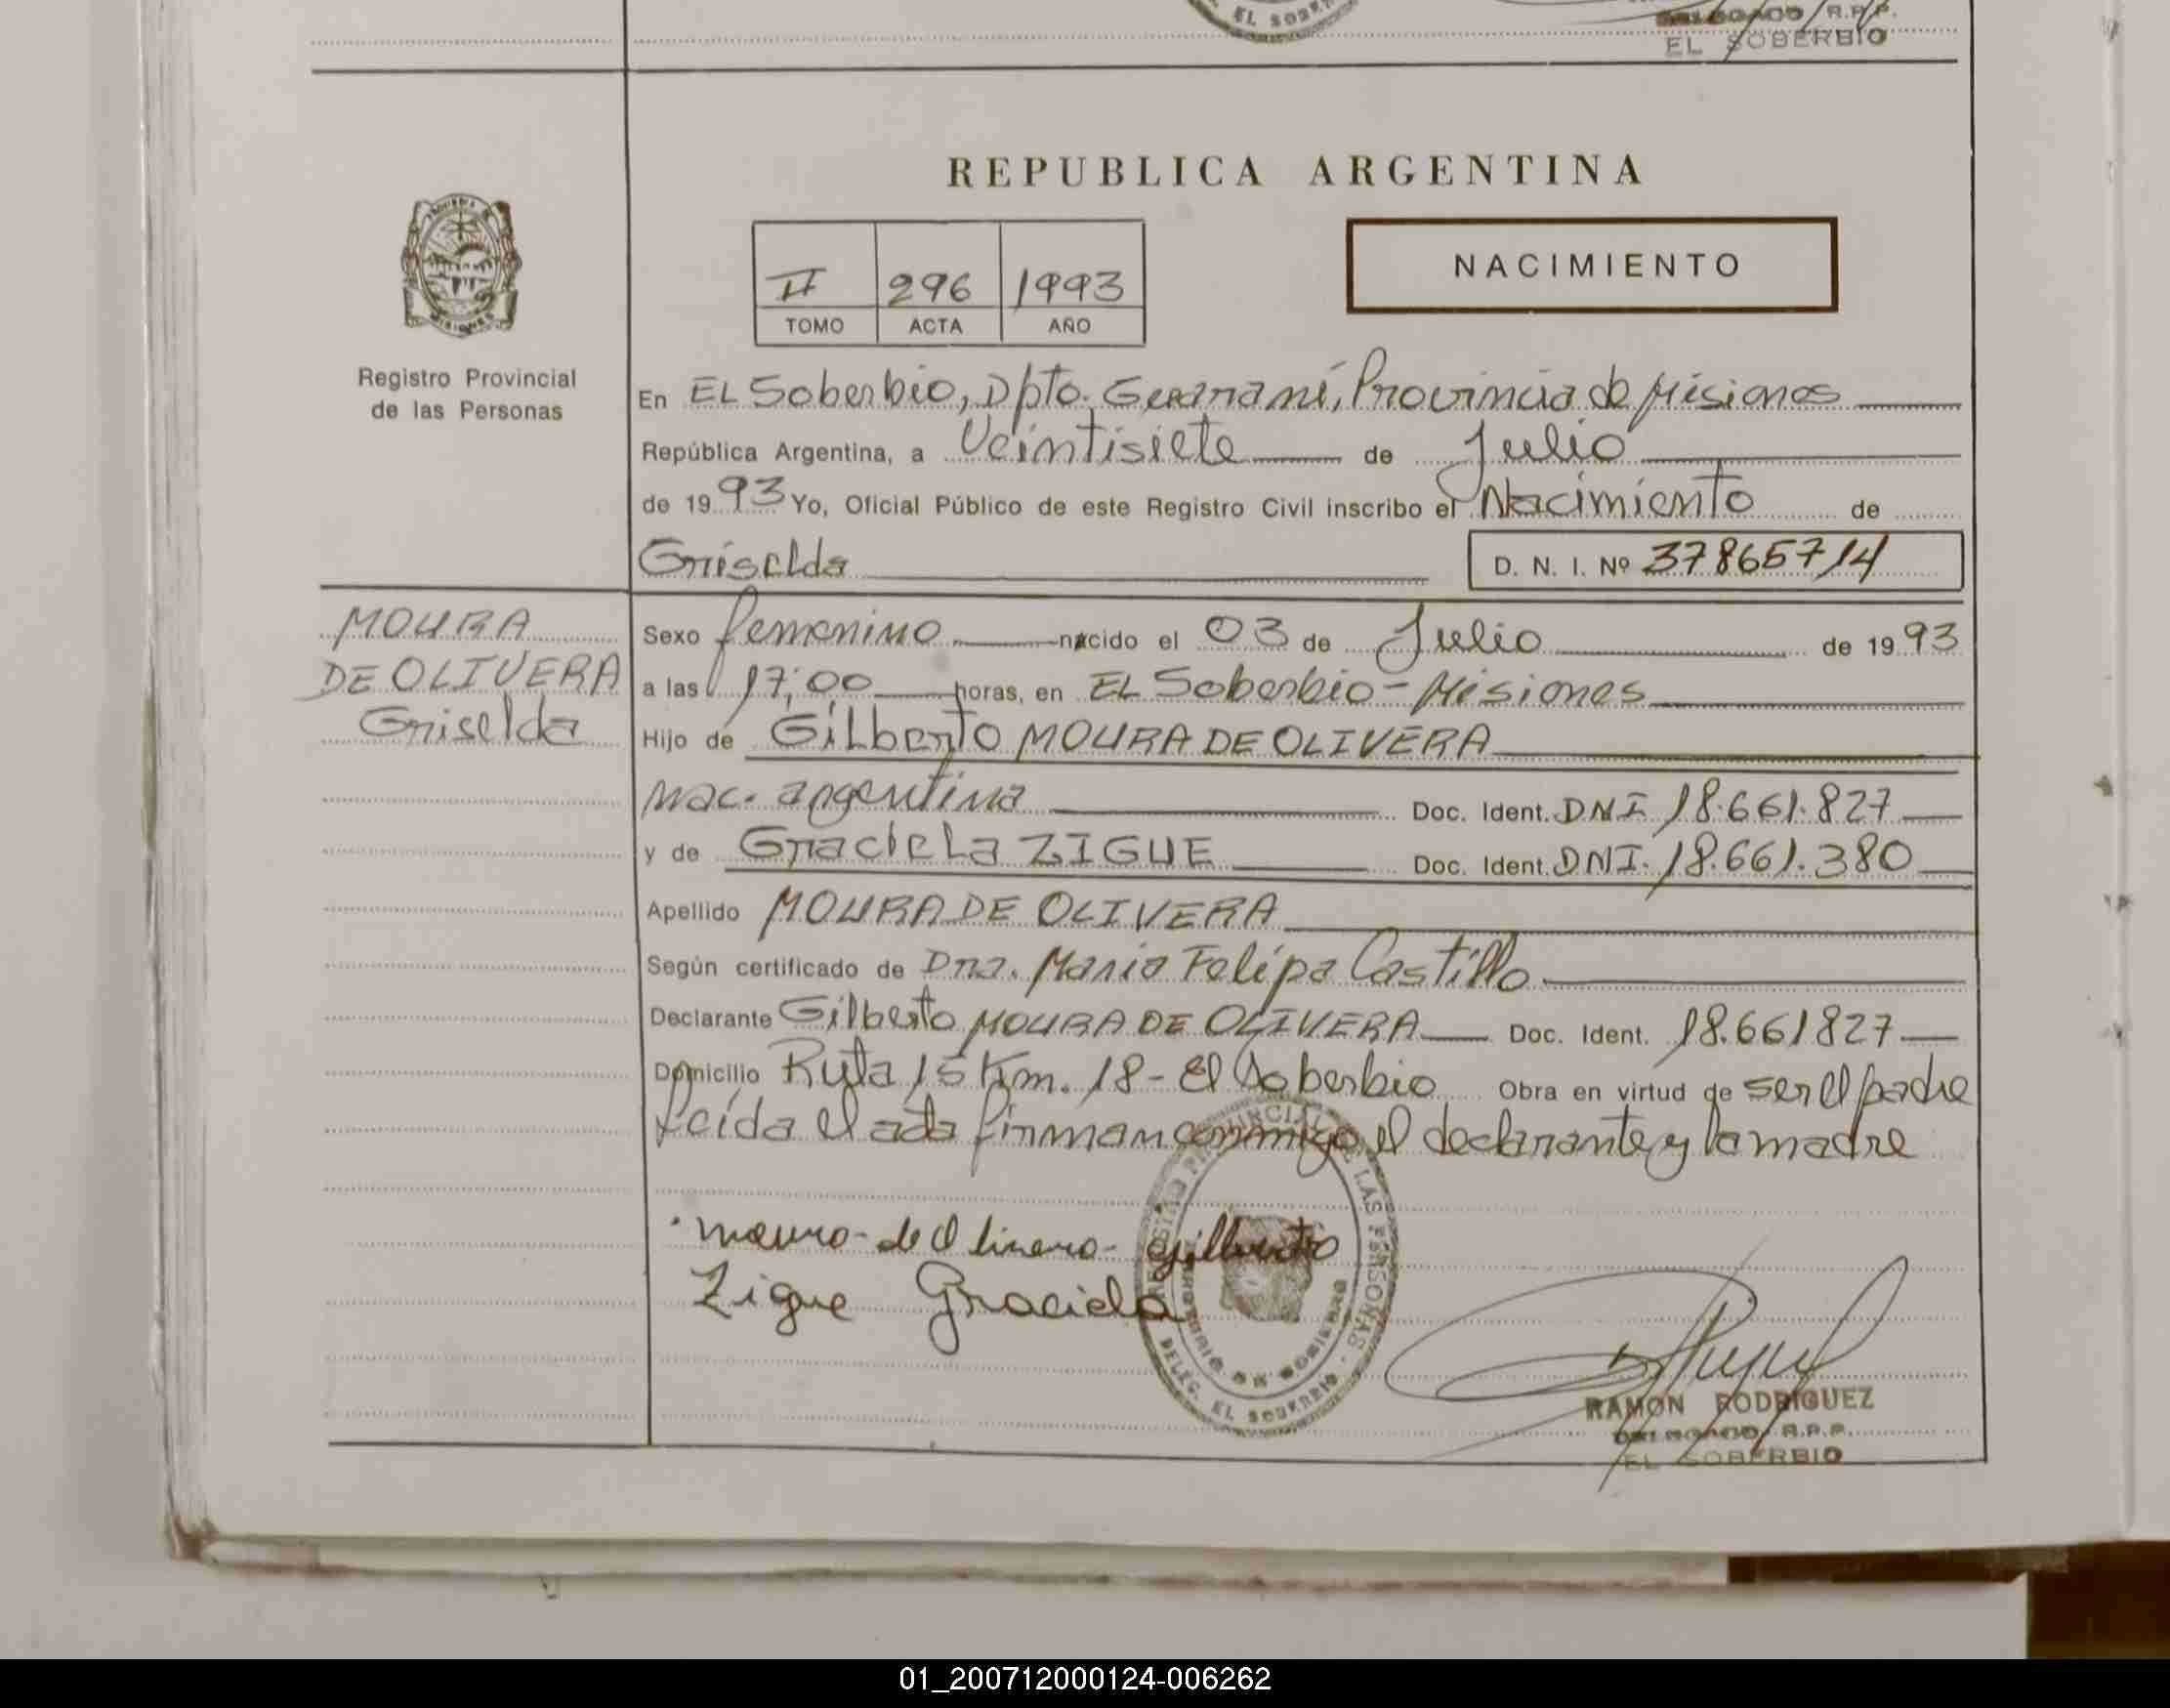 EL SOBERBIO
DELEGADO R.P.P.
EL SOBERBIO
REPUBLICA ARGENTINA
NACIMIENTO
II 296 1993
TOMO ACTA AÑO
MISIONES
Registro Provincial
de las Personas
En EL Soberbio, Dpto. Guaraní, Provincia de Misiones
República Argentina, a Veintisiete de Julio
de 1993 Yo, Oficial Público de este Registro Civil inscribo el Nacimiento de
Griselda D. N. I. Nº 37865714
MOURA
DE OLIVERA
Griselda
Sexo femenino nacido el 03 de Julio de 1993
a las 17:00 horas, en EL Soberbio - Misiones
Hijo de Gilberto MOURA DE OLIVERA
nac. argentina Doc. Ident. DNI 18.661.827
y de Graciela ZIGUE Doc. Ident. DNI. 18.661.380
Apellido MOURA DE OLIVERA
Según certificado de Dra. Maria Felipa Castillo
Declarante Gilberto MOURA DE OLIVERA Doc. Ident. 18.661827
Domicilio Ruta 15 Km. 18 - El Soberbio Obra en virtud de ser el padre
Leída el acta firman conmigo el declarante y la madre
Zigue Graciela
REGISTRO PROVINCIAL DE LAS PERSONAS
DELEG. EL SOBERBIO
RAMON RODRIGUEZ
DELEGADO R.P.P.
EL SOBERBIO
01_200712000124-006262